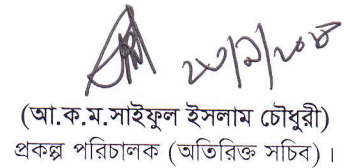 ২৩/৯/২০১৪
(আ.ক.ম.সাইফুল ইসলাম চৌধুরী)
প্রকল্প পরিচালক (অতিরিক্ত সচিব)।